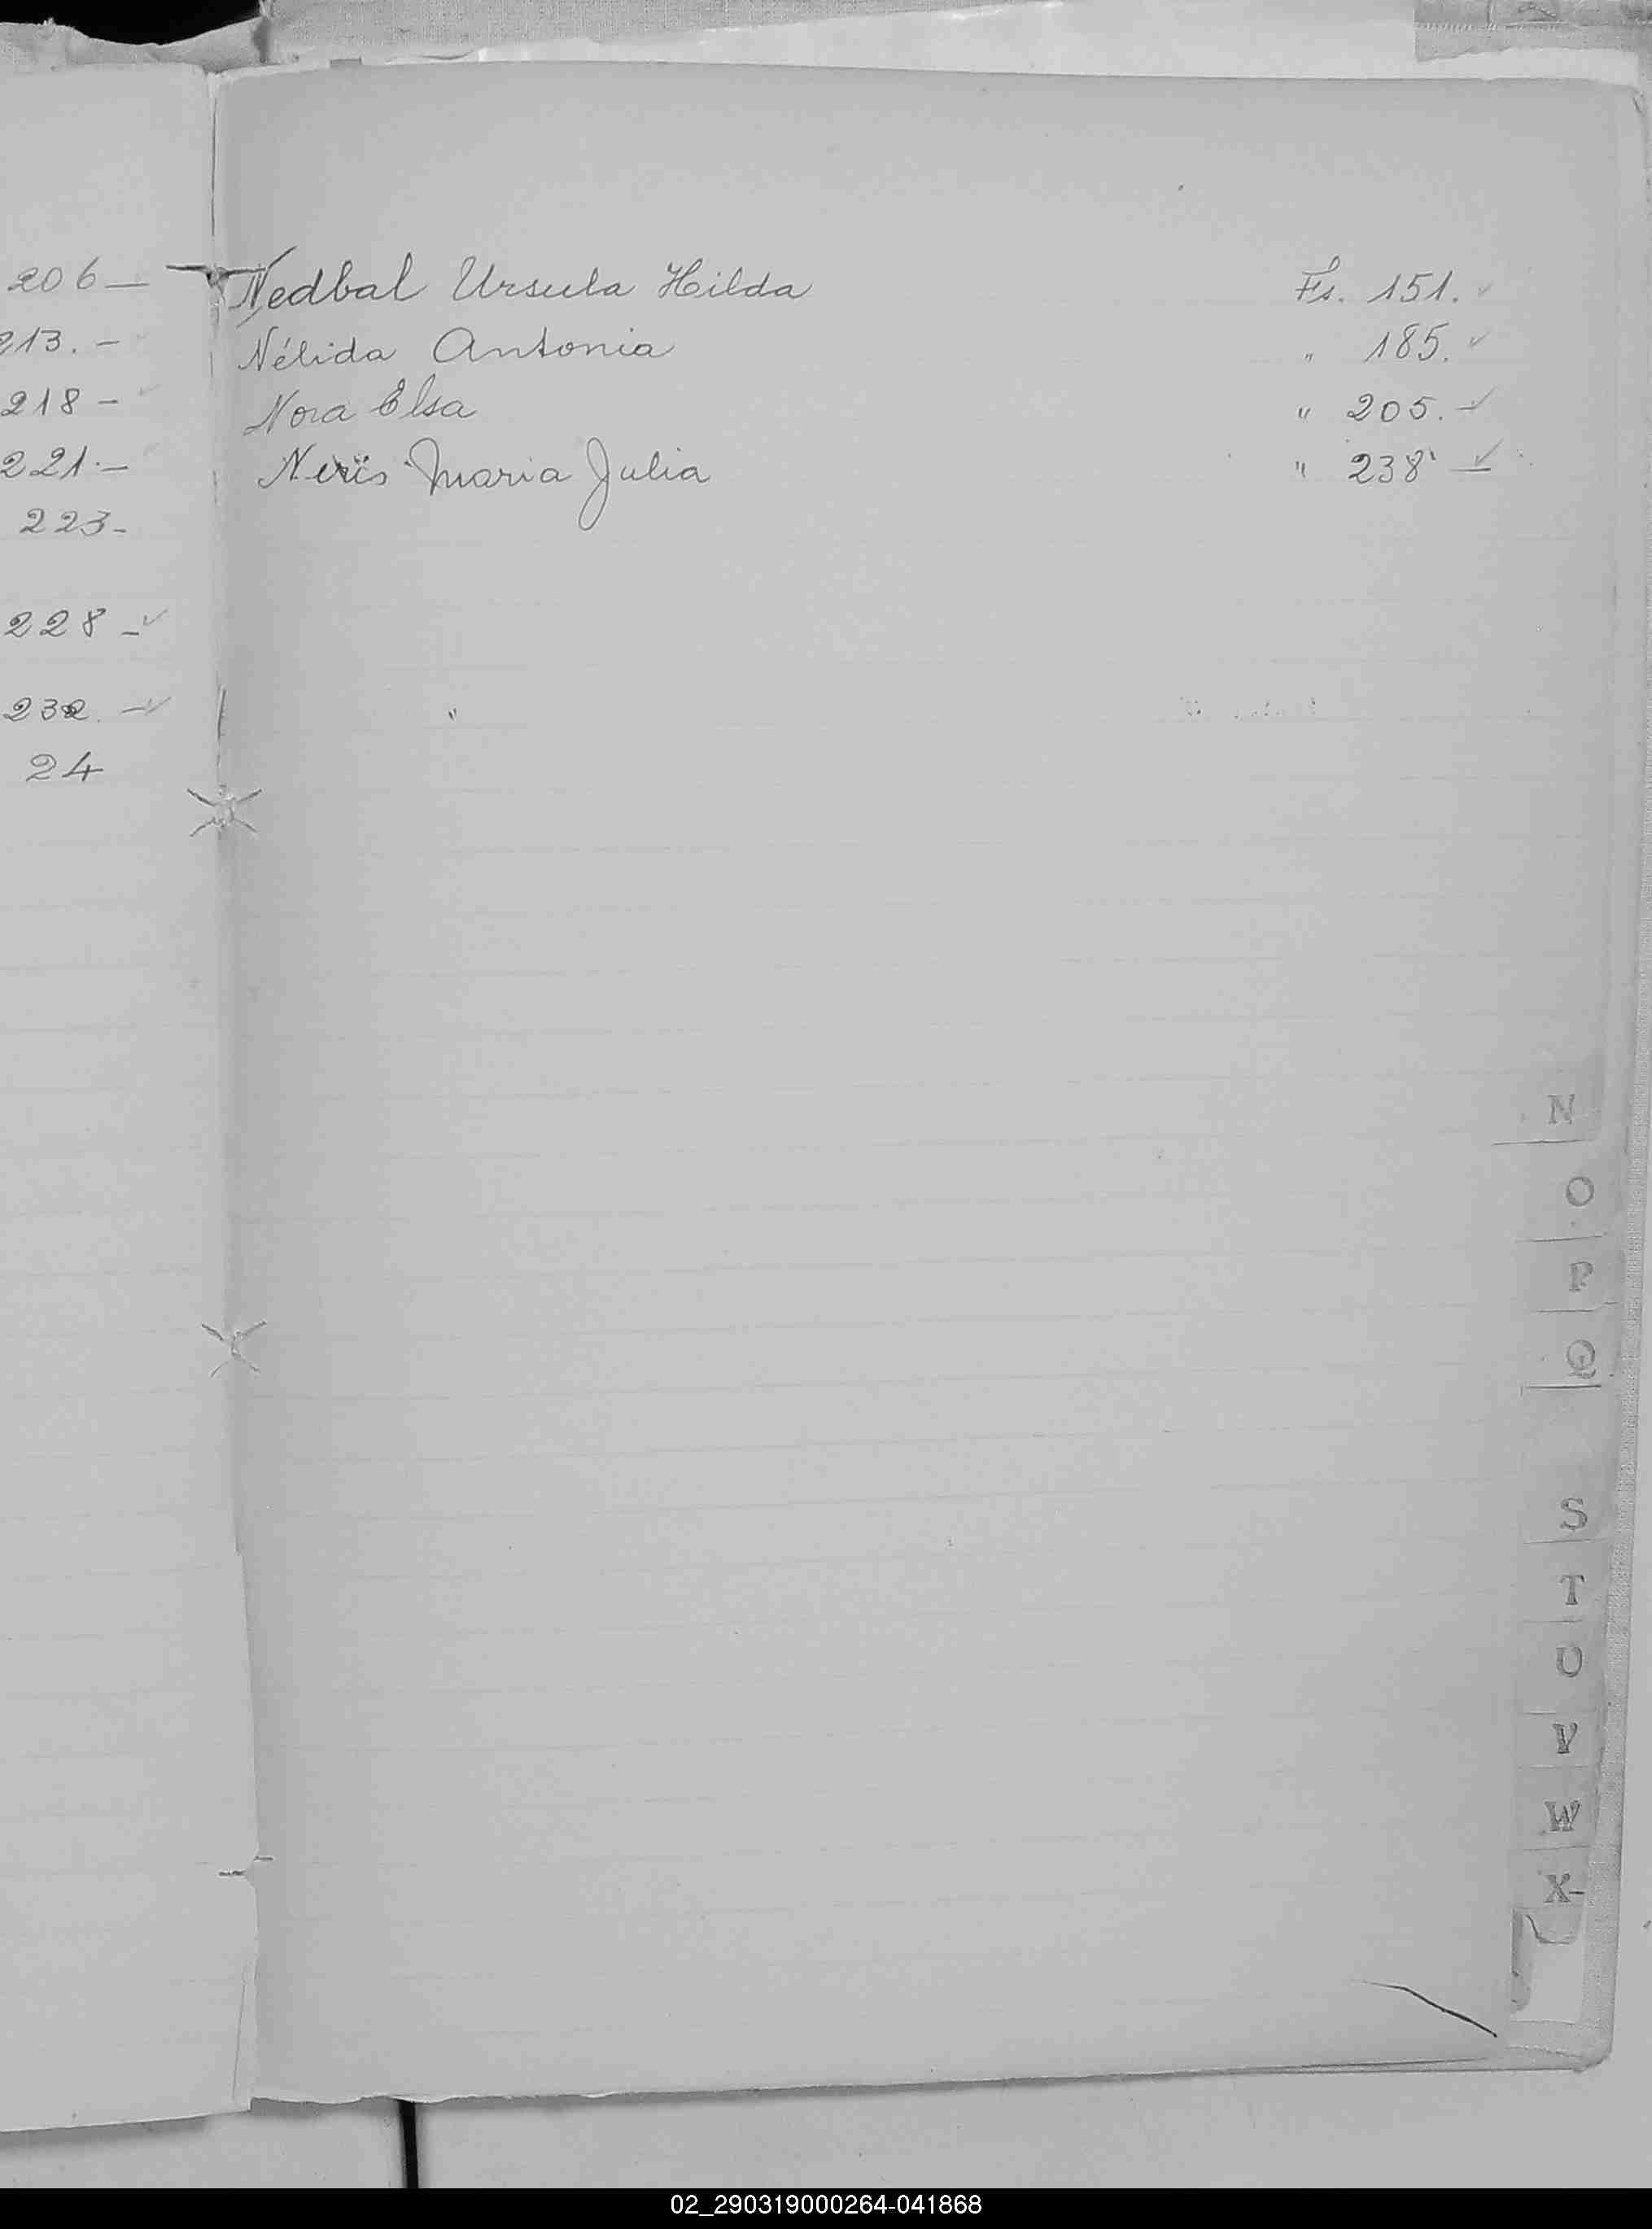 206 —
213. —
218 —
221. —
223 -
228 -
232. -
24
Nedbal Ursula Hilda Fs. 151.
Nélida Antonia " 185.
Nora Elsa " 205. -
Maria Julia " 238 —
N
O
P
Q
S
T
U
V
W
X-
02_290319000264-041868